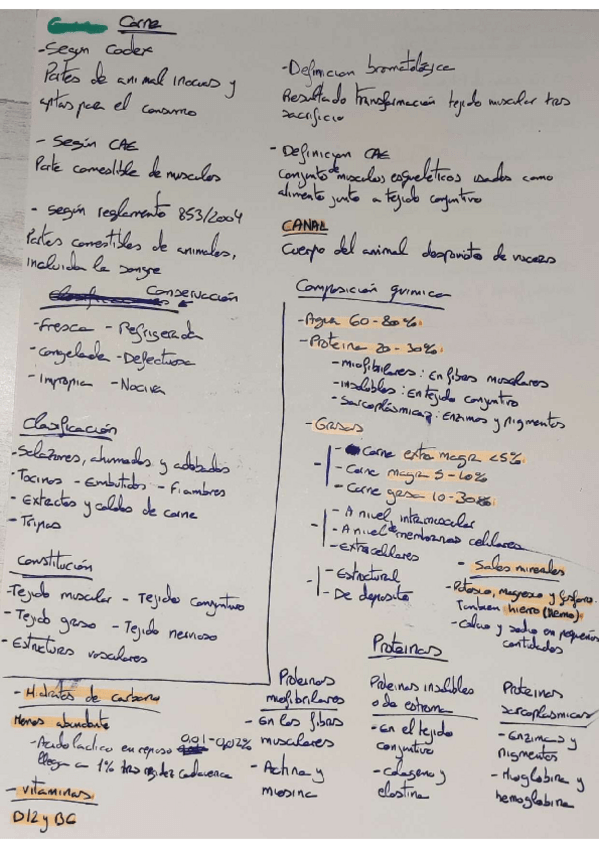 Carne
- Según Codex
Partes de animal inocuas y
aptas para el consumo
- Según CAE
Parte comestible de musculos
- según reglamento 853/2004
Partes comestibles de animales,
incluida la sangre
Conservación
- Fresca - Refrigerada
- Congelada - Defectuosa
- Impropia - Nociva
Clasificación
- Salazones, ahumados y adobados
- Tocinos - Embutidos - Fiambres
- Extractos y caldos de carne
- Tripas
Constitución
- Tejido muscular - Tejido conjuntivo
- Tejido graso - Tejido nervioso
- Estructuras vasculares
- Definicion bromatológica
Resultado transformación tejido muscular tras
sacrificio
- Definicion CAE
conjunto de musculos esqueléticos usados como
alimento junto a tejido conjuntivo
CANAL
Cuerpo del animal desprovisto de
Composición quimica
- Agua 60-80%
- Proteina 20-30%
- miofibrilares: En fibras musculares
- insolubles: En tejido conjuntivo
- Sarcoplásmicas: Enzimas y pigmentos
- Grasas
- Carne extra magra <5%
- Carne magra 5-10%
- Carne grasa 10-30%
- A nivel intramuscular
- A nivel de membranas celulares
- Extracelulares
- Estructural
- De deposito
- Sales minerales
- Potasio, magnesio y fosforo.
Tambien hierro (Hemo).
- Calcio y sodio en pequeñas
cantidades
- Hidratos de carbono
Menos abundante
- Acido lactico en reposo 0,01-0,02%
llega a 1% tras rigidez cadaverica
- vitaminas
B12 y B6
Proteinas
Proteinas
miofibrilares
- En las fibras
musculares
- Actina y
miosina
Proteinas insolubles
o de estroma
- En el tejido
conjuntivo
- Colageno y
elastina
Proteinas
sarcoplasmicas
- Enzimas y
pigmentos
- Mioglobina y
hemoglobina